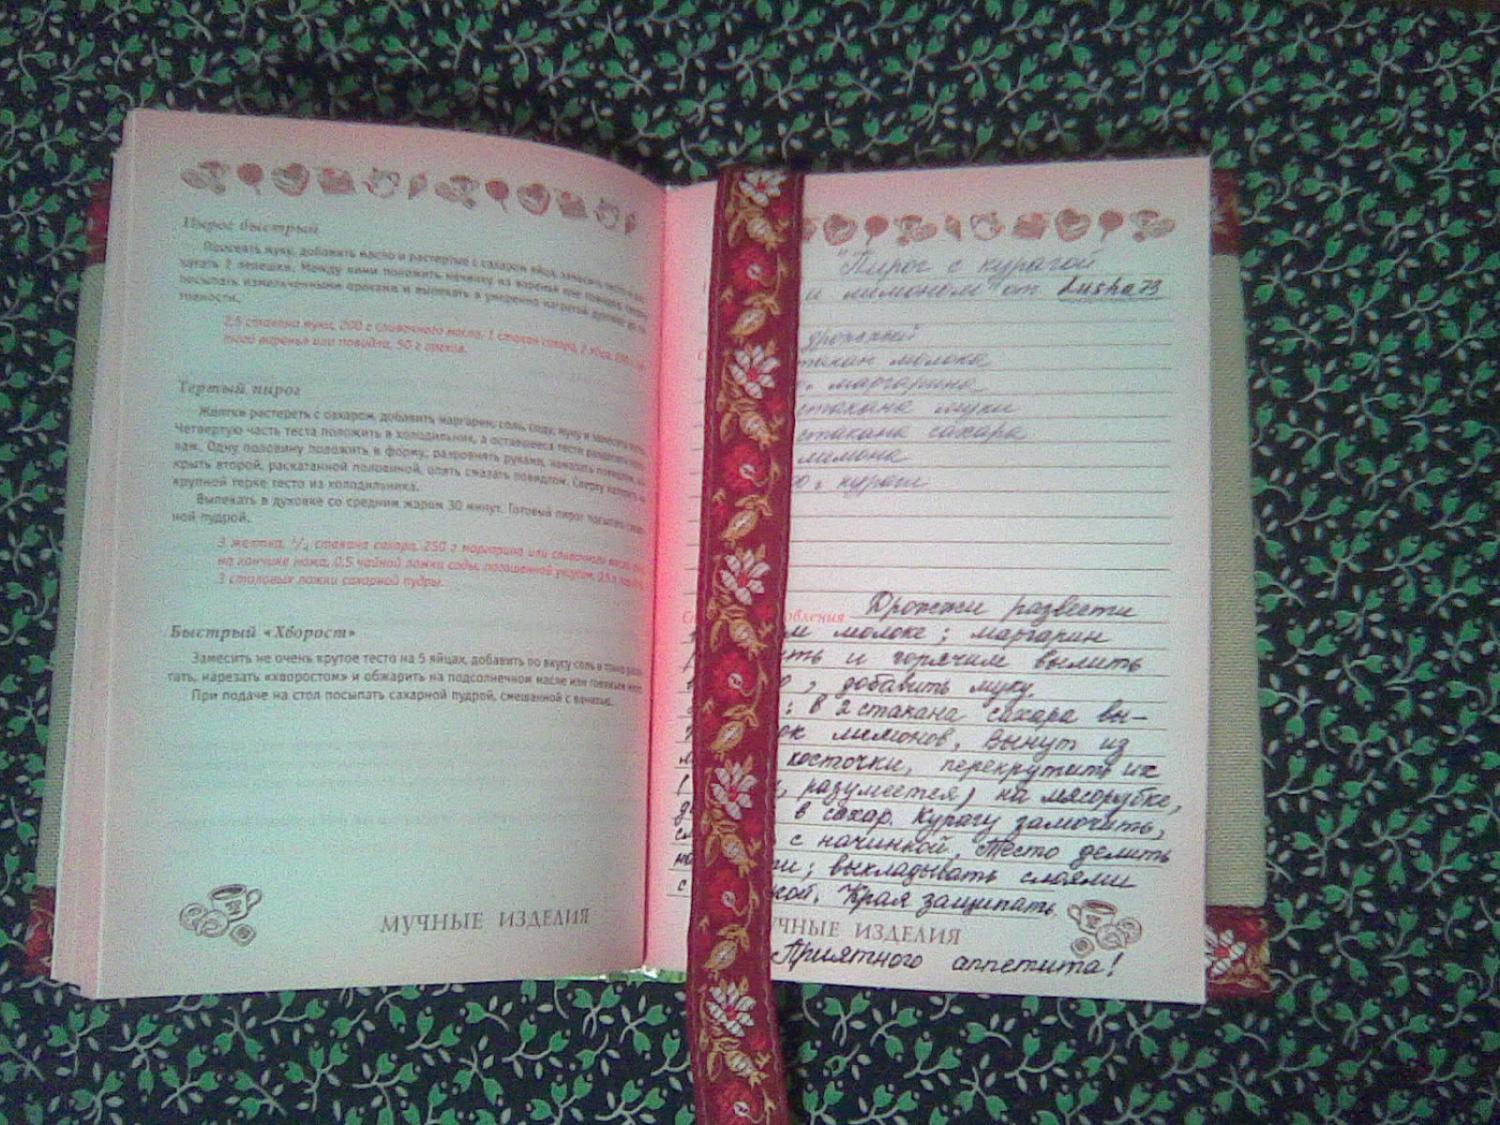 Пирог быстрый
Просеять муку, добавить масло и растертые с сахаром яйца, замесить тесто и
катать 2 лепешки. Между ними положить начинку из варенья или повидла,
посыпать измельченными орехами и выпекать в умеренно нагретой духовке до
2,5 стакана муки, 200 г сливочного масла, 1 стакан сахара, 2 яйца,
того варенья или повидла, 50 г орехов.
Тертый пирог
Желтки растереть с сахаром, добавить маргарин, соль, соду, муку и замесить
Четвертую часть теста положить в холодильник, а оставшееся тесто разделить
вам. Одну половину положить в форму, разровнять руками, намазать повидлом,
крыть второй, раскатанной половиной, опять смазать повидлом. Сверху натереть на
крупной терке тесто из холодильника.
Выпекать в духовке со средним жаром 30 минут. Готовый пирог посыпать
ной пудрой.
3 желтка, 3/4 стакана сахара, 250 г маргарина или сливочного масла,
на кончике ножа, 0,5 чайной ложки соды, погашенной уксусом,
3 столовых ложки сахарной пудры.
Быстрый «Хворост»
Замесить не очень крутое тесто на 5 яйцах, добавить по вкусу соль и тонко
тать, нарезать «хворостом» и обжарить на подсолнечном масле или
При подаче на стол посыпать сахарной пудрой, смешанной с
МУЧНЫЕ ИЗДЕЛИЯ
"Пирог с курагой
и лимоном" от Lusha73
дрожжей
такан молока
г. маргарина
стакана муки
стакана сахара
лимона
0 г кураги
овления Дрожжи развести
м молоке; маргарин
ть и горячим вылить
, добавить муку.
: в 2 стакана сахара вы-
ок лимонов, вынут из
косточки, перекрутить их
, разумеется) на мясорубке,
в сахар. Курагу замочить,
с начинкой. Тесто делить
ти; выкладывать слоями
с кой. Края защипать
ЧНЫЕ ИЗДЕЛИЯ
Приятного аппетита!